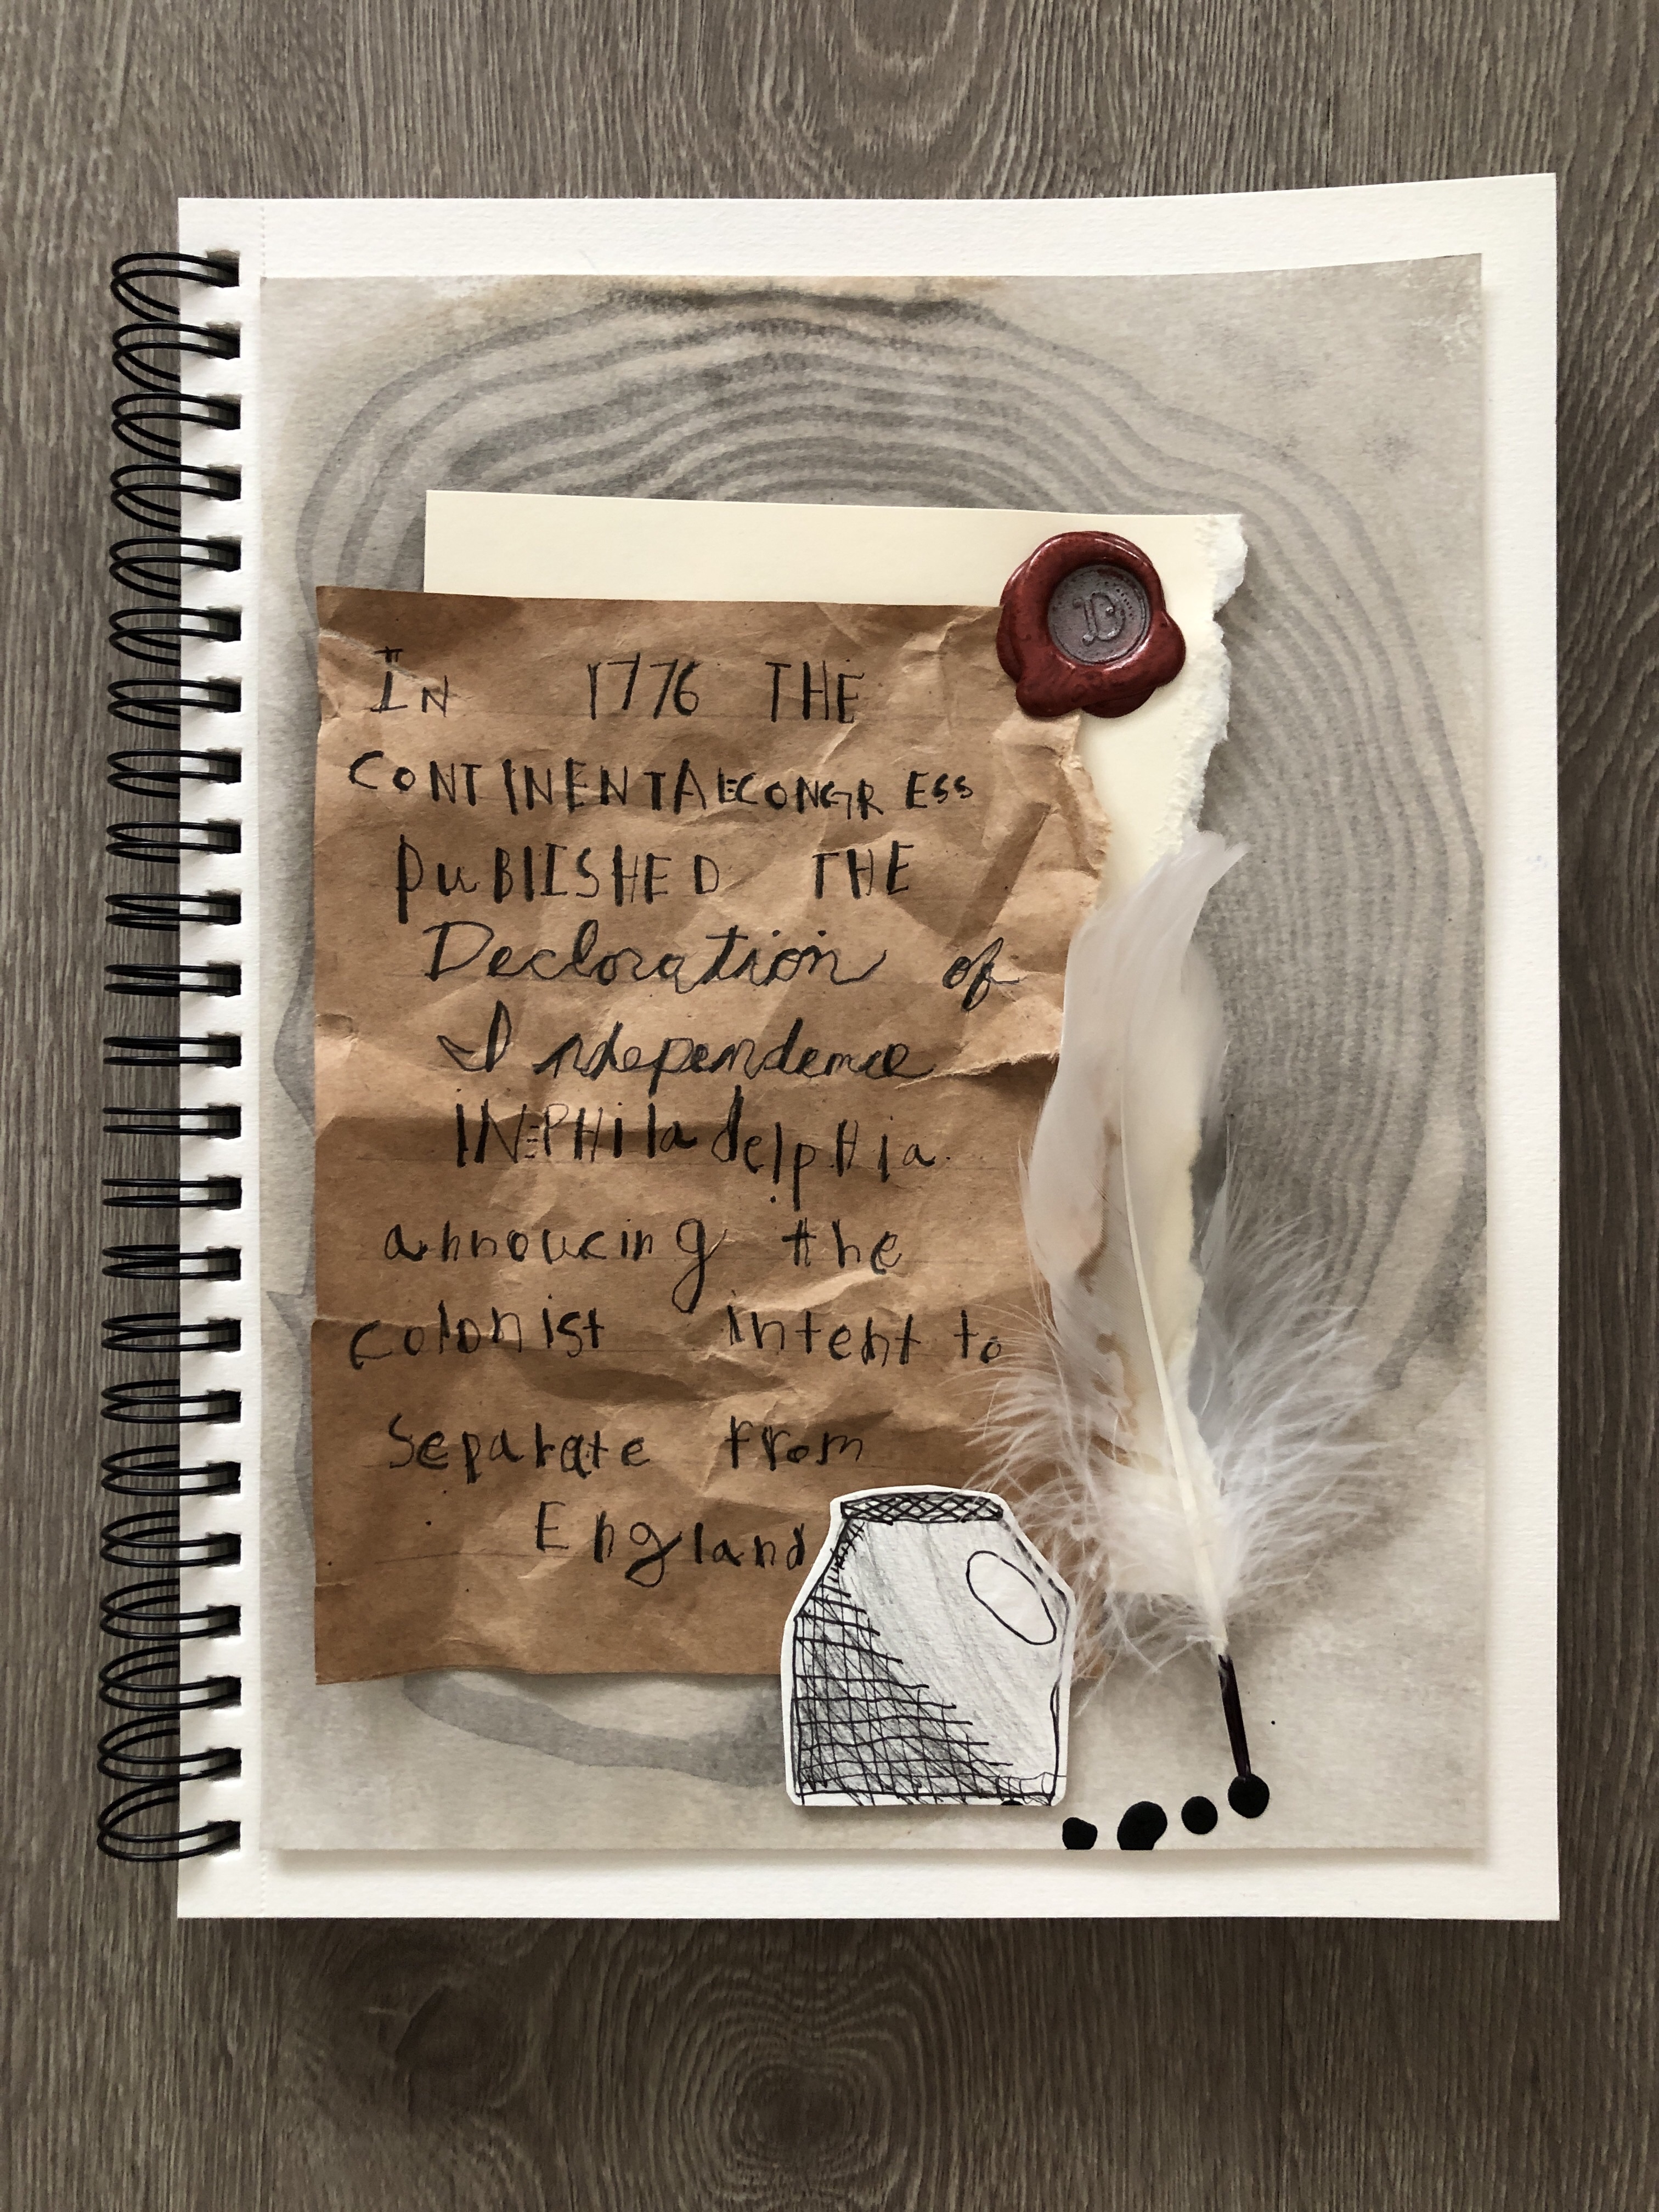 D
In 1776 THE
CONTINENTAL CONGRESS
PUBLISHED THE
Decloration of
Independence
IN PHiladelpHia
annoucing the
colonist intent to
Separate from
England